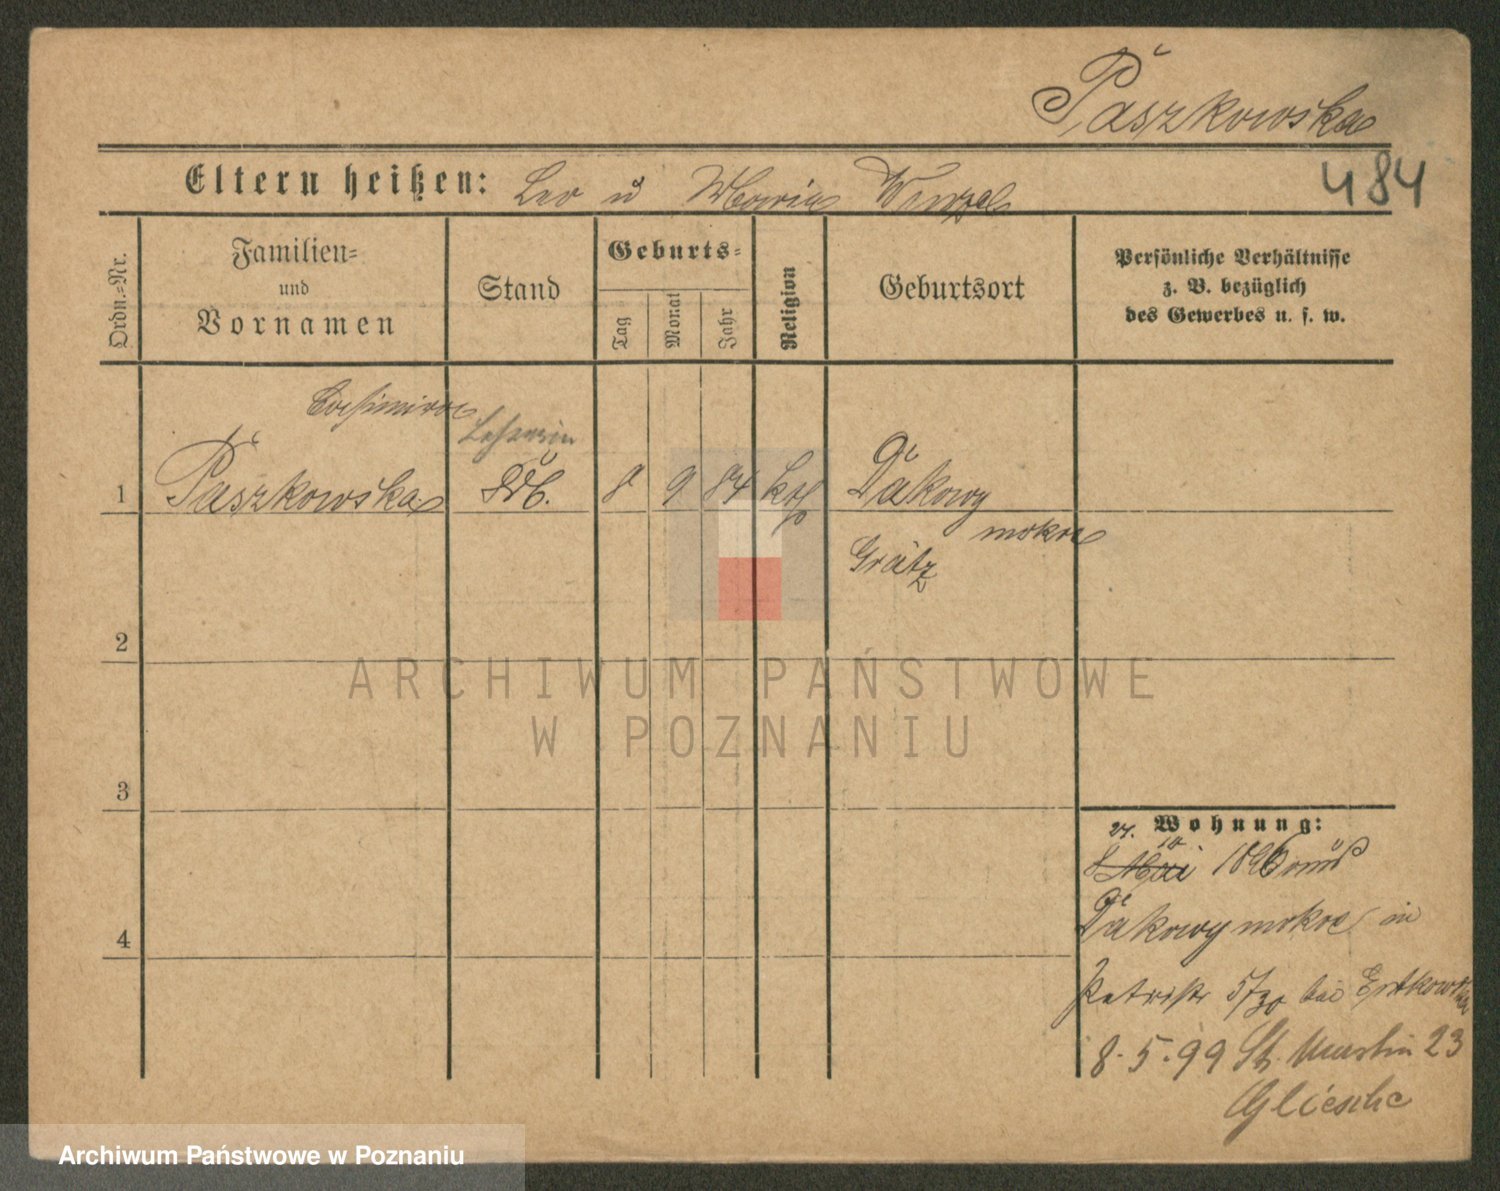 Paszkowska
484
Eltern heißen: Leo u Maria Wenzel
Ordn.=Nr.
Familien=
und
Vornamen
Stand
Geburts=
Tag
Monat
Jahr
Religion
Geburtsort
Persönliche Verhältnisse
z. B. bezüglich
des Gewerbes u. s. w.
Casimira
Lehrerin
1 Paszkowska 8 9 84 kth Dakowy
mokre
Grätz
2
3
4
Wohnung:
27. 10
8 Mai 1896 aus
Dakowy mokre in
Petristr 5/30 bei
8.5.99 St. Martin 23
Gliesche
ARCHIWUM PAŃSTWOWE
W POZNANIU
Archiwum Państwowe w Poznaniu